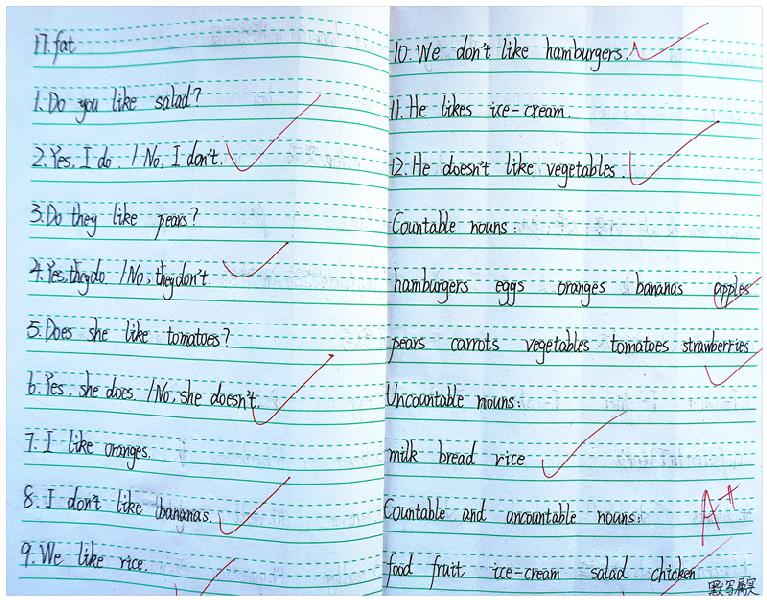 17. fat
1. Do you like salad?
2. Yes, I do. / No, I don't.
3. Do they like pears?
4. Yes, they do / No, they don't.
5. Does she like tomatoes?
6. Yes, she does. / No, she doesn't.
7. I like oranges.
8. I don't like bananas.
9. We like rice.
10. We don't like hamburgers.
11. He likes ice-cream.
12. He doesn't like vegetables.
Countable nouns:
hamburgers eggs oranges bananas apples
pears carrots vegetables tomatoes strawberries
Uncountable nouns:
milk bread rice
Countable and uncountable nouns:
A+
food fruit ice-cream salad chicken
默写